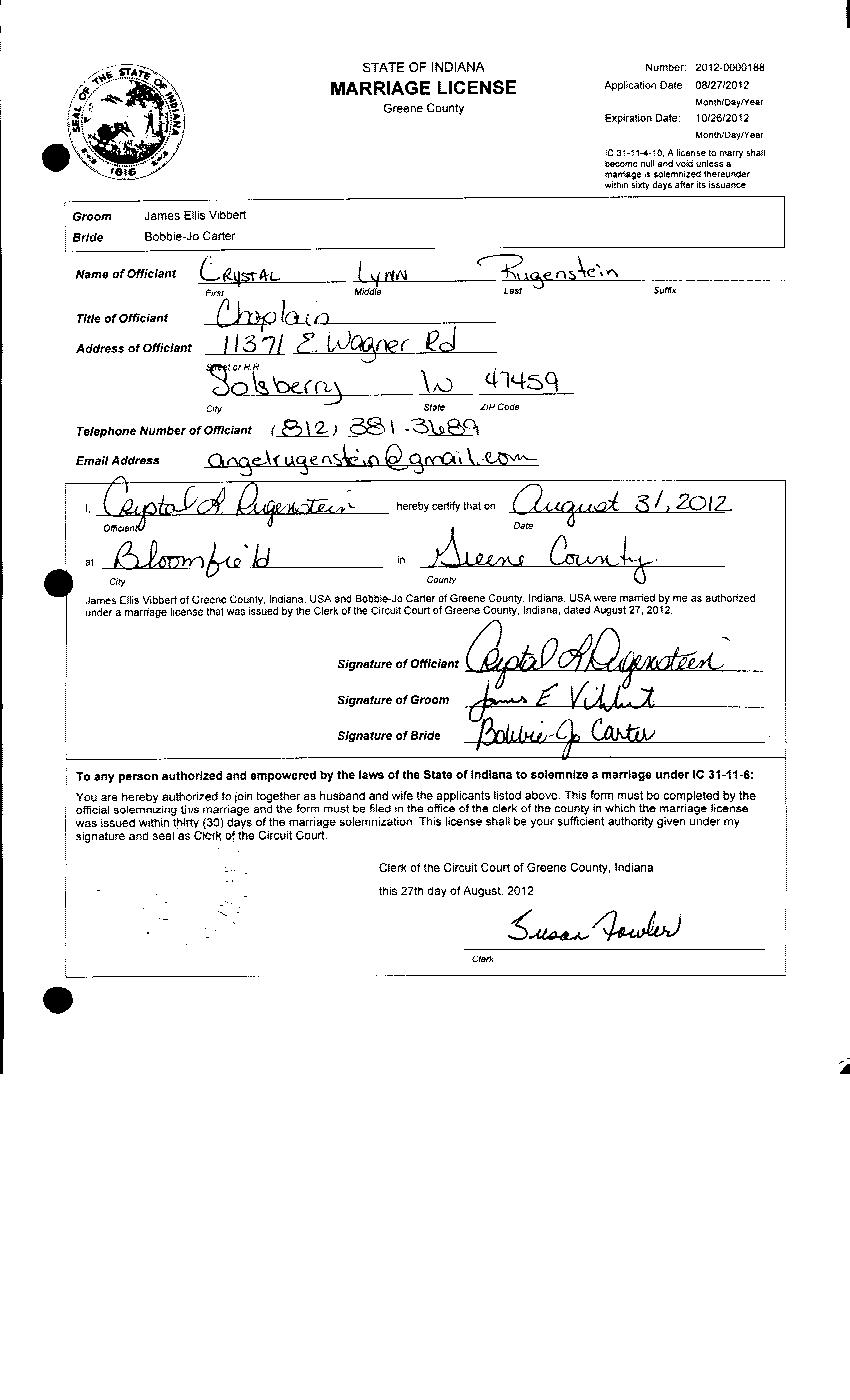 STATE OF INDIANA
MARRIAGE LICENSE
Greene County
Number: 2012-0000188
Application Date 08/27/2012
Month/Day/Year
Expiration Date: 10/26/2012
Month/Day/Year
IC 31-11-4-10, A license to marry shall
become null and void unless a
marriage is solemnized thereunder
within sixty days after its issuance
SEAL OF THE STATE OF INDIANA
1816
Groom James Ellis Vibbert
Bride Bobbie-Jo Carter
Name of Officiant Crystal Lynn Rugenstein
First Middle Last Suffix
Title of Officiant Chaplain
Address of Officiant 11371 E. Wagner Rd
Street or R.R
Solsberry IN 47459
City State ZIP Code
Telephone Number of Officiant (812) 381-3689
Email Address angelrugenstein@gmail.com
I, Crystal L Rugenstein hereby certify that on August 31, 2012
Officiant Date
at Bloomfield in Greene County.
City County
James Ellis Vibbert of Greene County, Indiana, USA and Bobbie-Jo Carter of Greene County, Indiana, USA were married by me as authorized
under a marriage license that was issued by the Clerk of the Circuit Court of Greene County, Indiana, dated August 27, 2012.
Signature of Officiant Crystal L Rugenstein
Signature of Groom James E Vibbert
Signature of Bride Bobbie-Jo Carter
To any person authorized and empowered by the laws of the State of Indiana to solemnize a marriage under IC 31-11-6:
You are hereby authorized to join together as husband and wife the applicants listed above. This form must be completed by the
official solemnizing this marriage and the form must be filed in the office of the clerk of the county in which the marriage license
was issued within thirty (30) days of the marriage solemnization. This license shall be your sufficient authority given under my
signature and seal as Clerk of the Circuit Court.
Clerk of the Circuit Court of Greene County, Indiana
this 27th day of August, 2012
Susan Fowler
Clerk